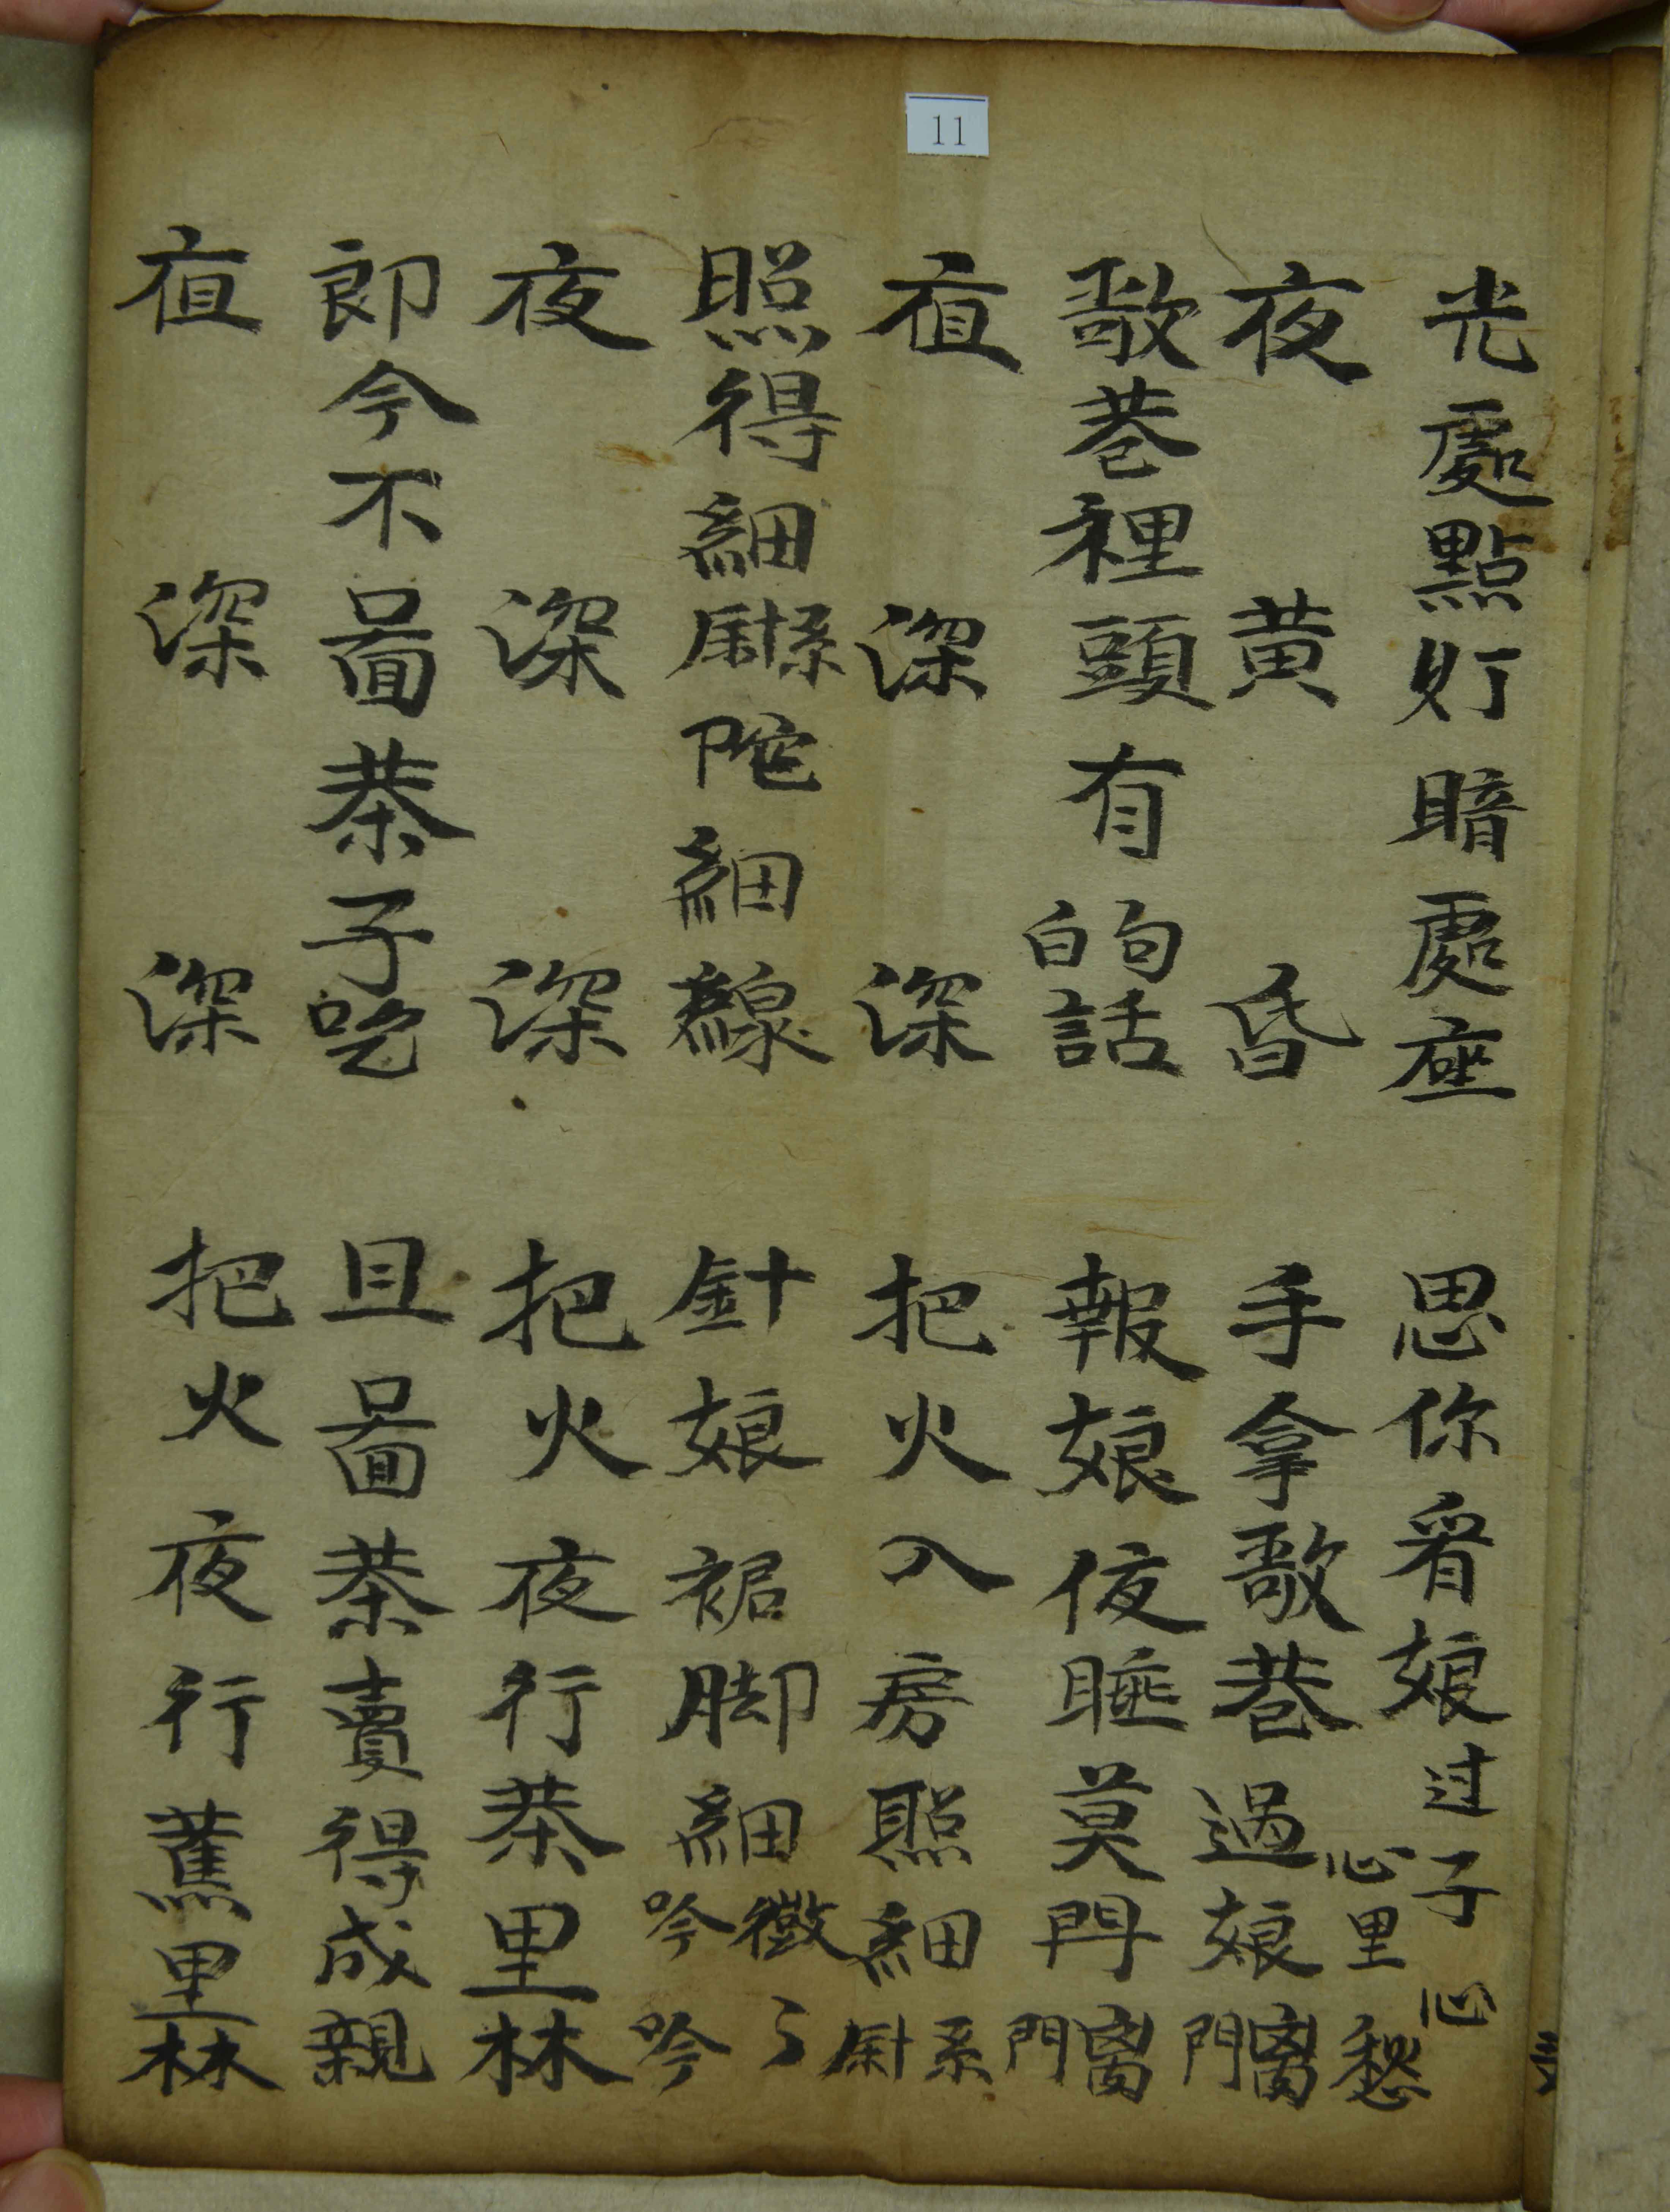 11
光處點灯暗處座 思你看娘过子心
心里愁
夜黄昏 手拿歌巷過娘
歌巷裡頭有的句話 報娘夜睡莫閂
夜深深 把火入房照細
照得細陀細線 針娘裾脚細
夜深深 把火夜行茶里林
即今不啚茶子吃 且啚茶賣得成親
夜深深 把火夜行蕉里林